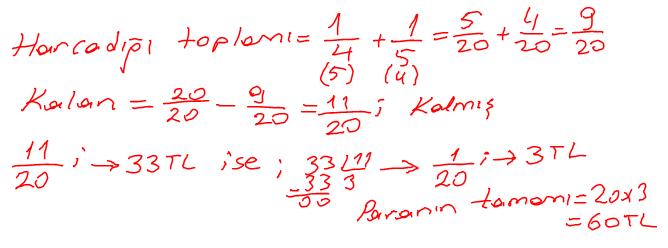 Harcadığı toplamı = 1/4 + 1/5 = 5/20 + 4/20 = 9/20
(5) (4)
Kalan = 20/20 - 9/20 = 11/20 i Kalmış
11/20 i → 33TL ise ; 33 | 11 → 1/20 i → 3TL
-33 3
00
Paranın tamamı = 20x3
= 60TL